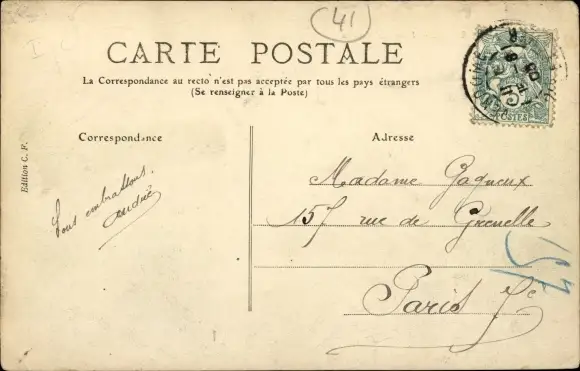 41
CARTE POSTALE
La Correspondance au recto n'est pas acceptée par tous les pays étrangers
(Se renseigner à la Poste)
Correspondance
Adresse
Edition C. F.
Vous embrassons.
André
Madame Gagneux
157 rue de Grenelle
Paris 7e
157
POSTES